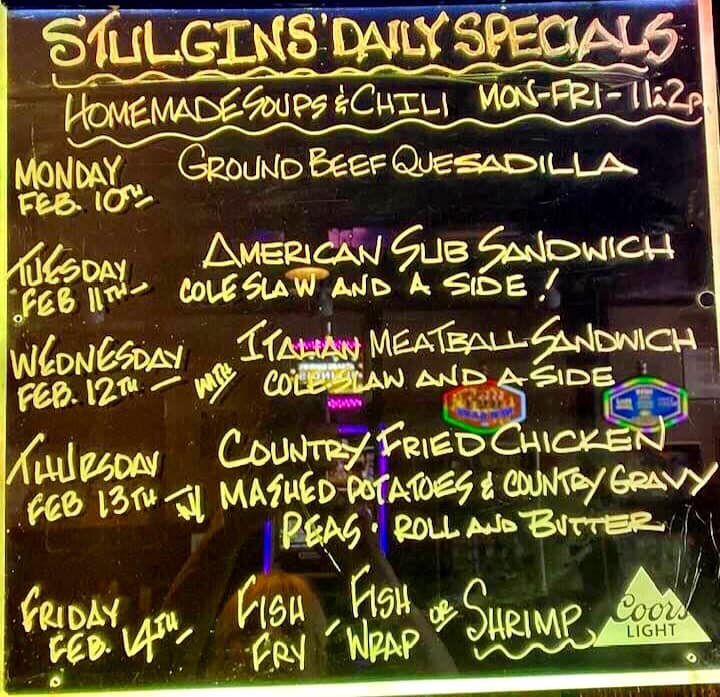 STULGINS' DAILY SPECIALS
HOMEMADE SOUPS & CHILI MON-FRI - 11à2P
MONDAY GROUND BEEF QUESADILLA
FEB. 10TH
TUESDAY AMERICAN SUB SANDWICH
FEB 11TH - COLE SLAW AND A SIDE!
WEDNESDAY ITALIAN MEATBALL SANDWICH
FEB. 12TH - WITH COLESLAW AND A SIDE
THURSDAY COUNTRY FRIED CHICKEN
FEB 13TH - W/ MASHED POTATOES & COUNTRY GRAVY
PEAS · ROLL AND BUTTER
FRIDAY FISH - FISH OR SHRIMP
FEB. 14TH - FRY WRAP
Coors
LIGHT